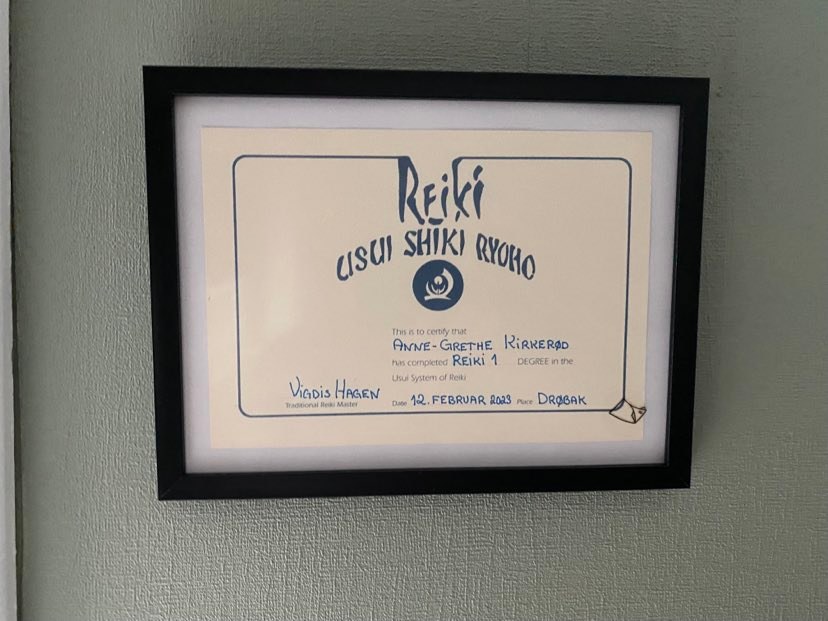 Reiki
USUI SHIKI RYOHO
This is to certify that
ANNE-GRETHE KIRKERØD
has completed REIKI 1 DEGREE in the
Usui System of Reiki
VIGDIS HAGEN
Traditional Reiki Master
Date 12. FEBRUAR 2023 Place DRØBAK